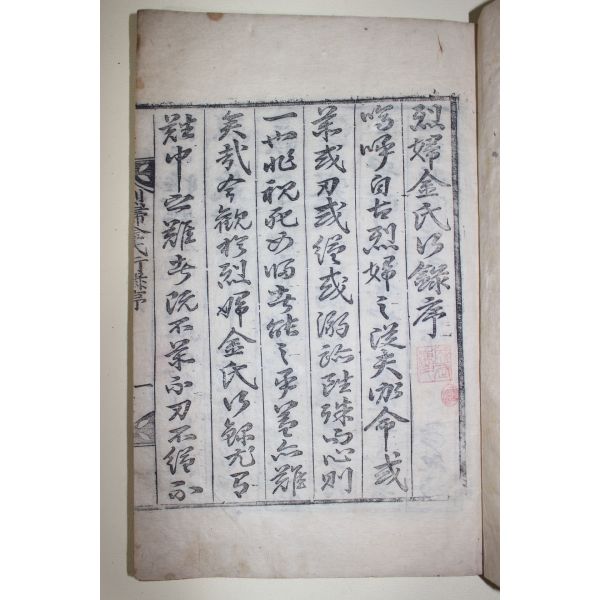 烈婦金氏行錄序
嗚呼自古烈婦之從夫命或
藥或刃或縊或溺跡雖殊而心則
一也非視死如歸者能之乎蓋亦難
矣哉今觀於烈婦金氏行錄尤有
難中之難者旣不藥不刃不縊不
烈婦金氏行錄序 一